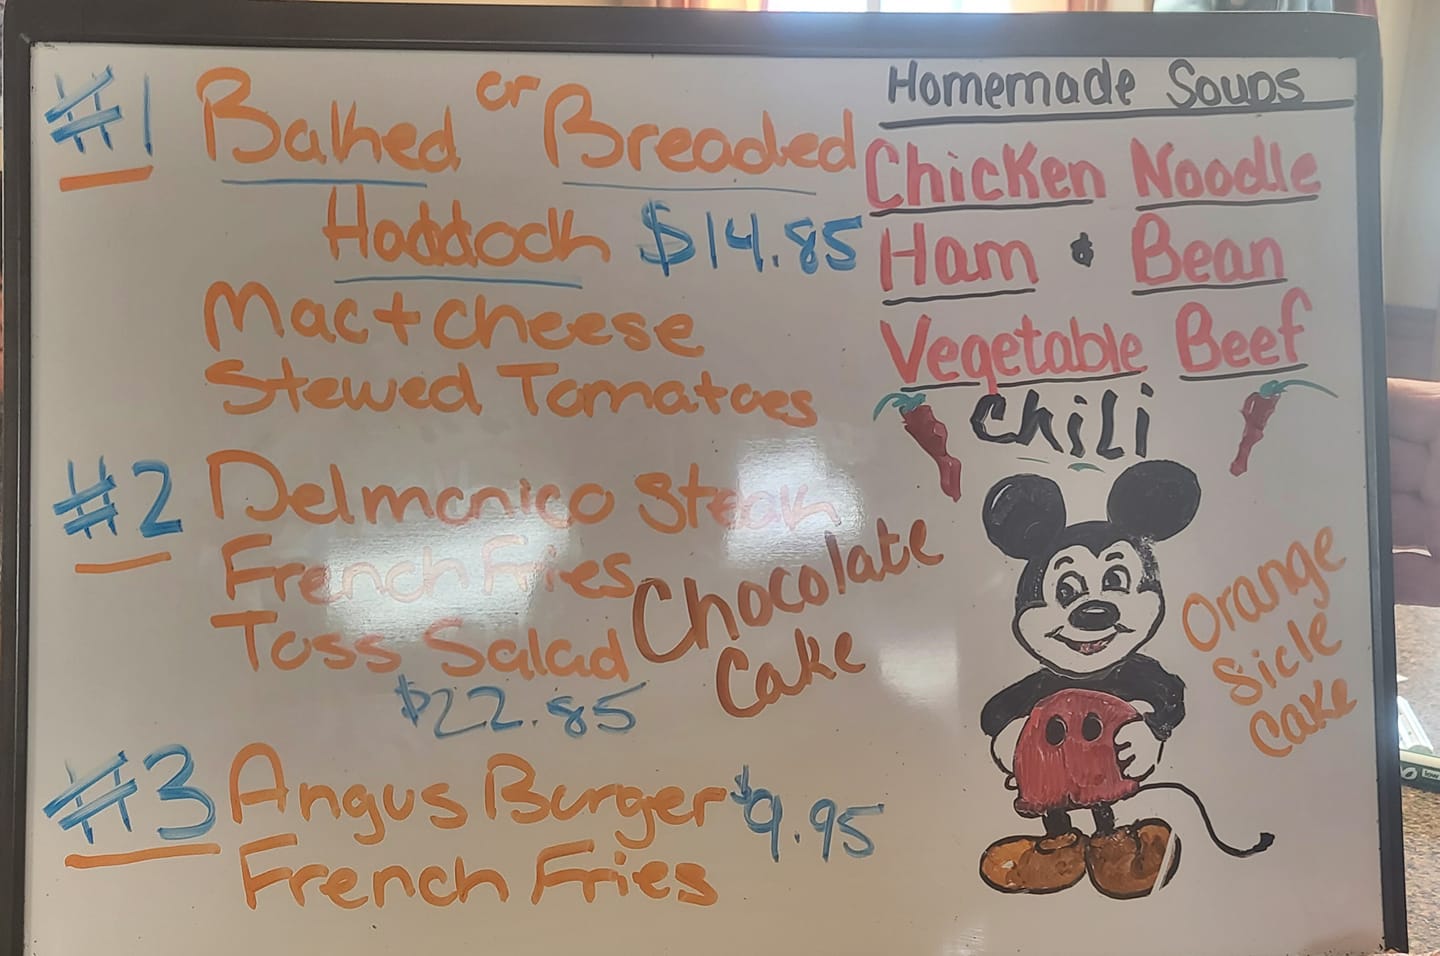 #1 Baked or Breaded
Haddock $14.85
Mac + cheese
Stewed Tomatoes
#2 Delmonico Steak
French Fries
Toss Salad
$22.85
Chocolate
Cake
#3 Angus Burger $9.95
French Fries
Homemade Soups
Chicken Noodle
Ham & Bean
Vegetable Beef
Chili
Orange
Sicle
Cake